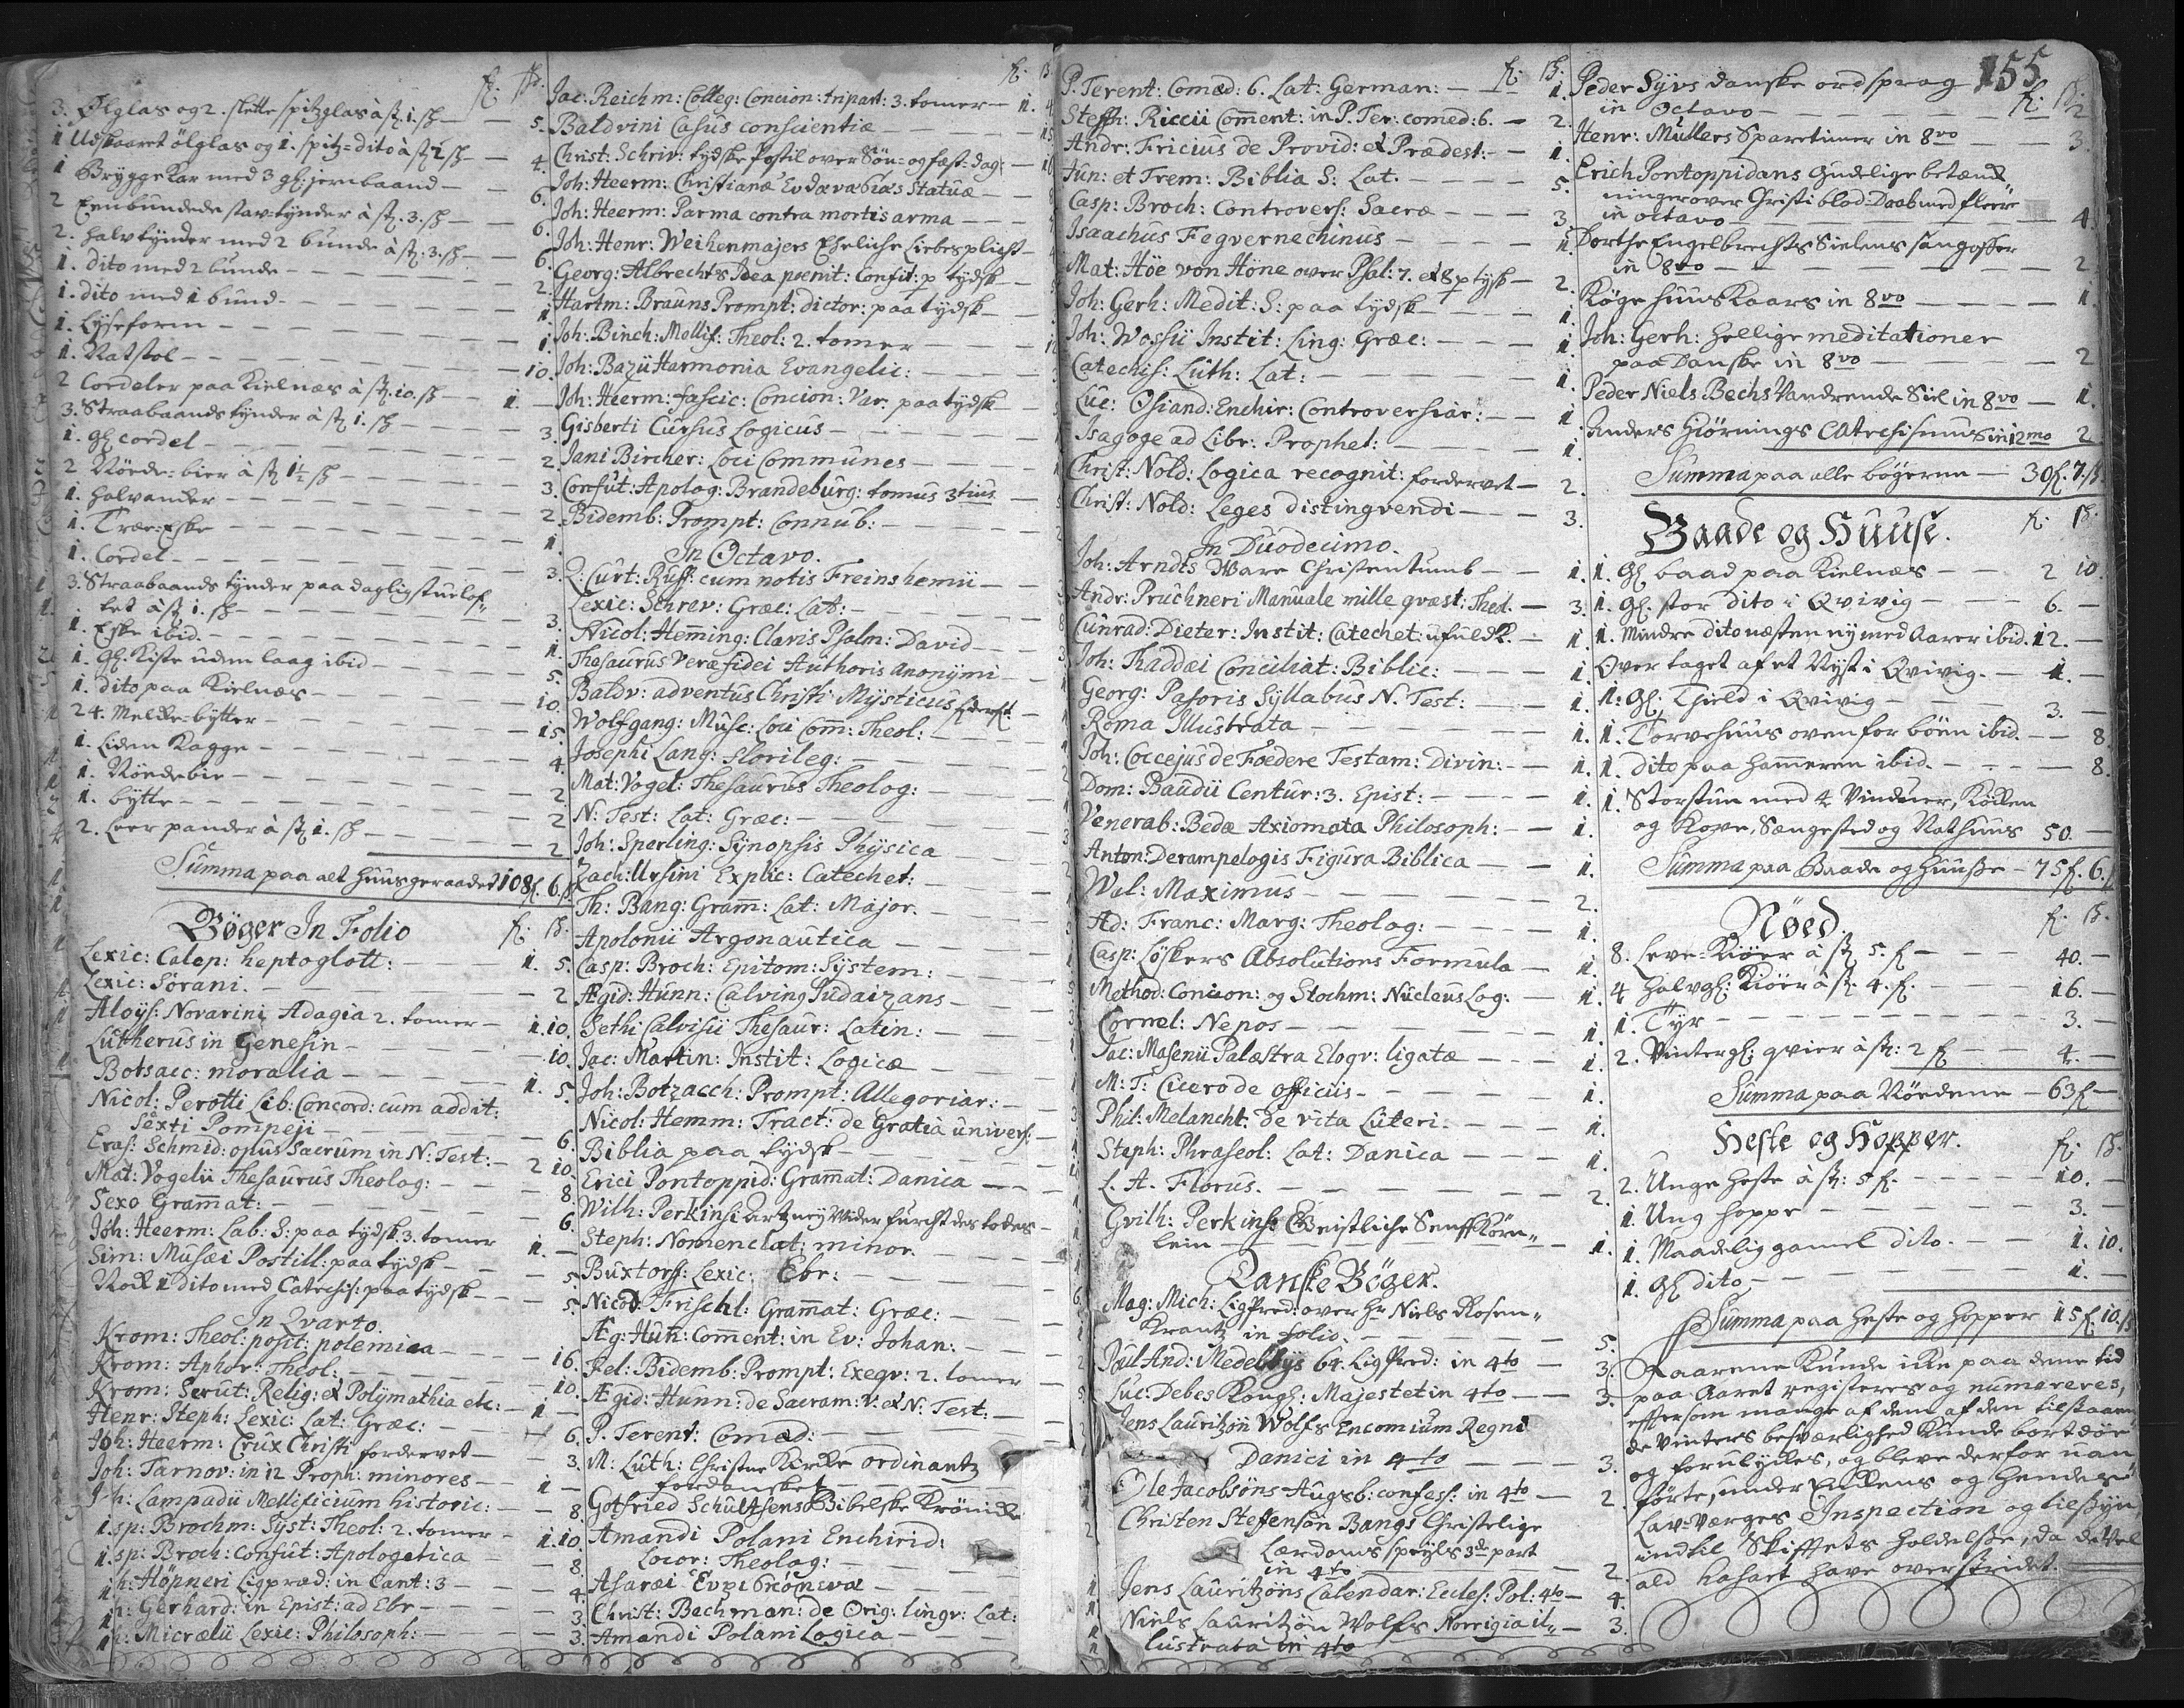 fl: ß:
3. Ølglas og 2. slette spitzglas à st. 1. ß — 5.
1 Udskaaret ölglas og 1. spitz-dito à st 2 ß — 4.
1 Bryggekar med 3 gl: jernbaand — 6.
2 Eenbundede stavtynder à st. 3. ß — 6.
2. halvtynder med 2 bunde à st. 3. ß — 6.
1. dito med 2 bunde — 2.
1. dito med 1 bund — 1
1. Lyseform — 1.
1. Natstol — 10.
2 Cordeler paa Kielnæs à st. 10. ß — 1. —
3. Straabaands tynder à st 1. ß — 3.
1. gl cordel — 2.
2 Nöede-bier à st 1½ ß — 3.
1. halvander — 2.
1. Træ-Eske — 1.
1. Cordel — 3.
3. Straabaands tynder paa dagligstuelof-
tet à st 1. ß — 3.
1. Eske ibid. — 1.
1. gl. Kiste uden laag ibid — 5.
1. dito paa Kielnæs — 10.
24. Melke-bytter — 15.
1. Liden Kagge — 4.
1. Nöedebie — 2
1. bytte — 2
2. Leerpander à st 1. ß — 2
Summa paa alt huusgeraadet 108 fl. 6. ß
Böger In Folio fl: ß.
Lexic: Calep: heptoglott: — 1. 5.
Lexic: Sorani. — 2
Aloys: Novarini Adagia 2. tomer — 1. 10.
Lutherus in Genesin — 10.
Botsacc: moralia — 1. 5.
Nicol: Perotti Lib: Concord: cum addit:
Sexti Pompeji — 6.
Eras: Schmid: opus Sacrum in N: Test: — 2 10.
Mat: Vogelii Thesaurus Theolog: — 8.
Sexo Gramat: — 6.
Joh: Heerm: Lab: S: paa tydsk 3. tomer 1. —
Sim: Musæi Postill: paa tydsk — 5
Nok 1 dito med Catechis: paa tydsk — 5.
In Qvarto.
Krom: Theol: posit: polemica — 16.
Krom: Aphor: Theol: — 10.
Krom: Scrut: Relig: et Polymathia etc: — 1 —
Henr: Steph: Lexic: Lat: Græc: — 6.
Joh: Heerm: Crux Christi fordervet — 3.
Joh: Tarnov: in 12 Proph: minores — 1 —
Joh: Lampadii Mellificium historic: — 8.
sp: Brochm: Syst: Theol: 2. tomer — 1. 10.
sp: Broch: Confut: Apologetica — 8.
h: Höpneri Ligpræd: in Cant: 3 — 4.
h: Gerhard: in Epist: ad Ebr — 3.
h: Micrælii Lexic: Philosoph: — 3.
fl: ß.
Jac: Reichm: Colleg: Concion: tripart: 3. tomer — 1. 4
Baldvini Casus conscientiæ — 15
Christ: Schriv: tydske Postil over Sön- og fæst-dag: — 10
Joh: Heerm: Christianæ Statuæ —
Joh: Heerm: Parma contra mortis arma —
Joh: Henr: Weihenmajers Eheliche Liebesplicht —
Georg: Albrechts Idea poenit: Confit: p tydsk —
Hartm: Brauns Prompt: dictor: paa tydsk —
Joh: Binch: Mellif: Theol: 2. tomer — 12
Joh: Bazii Harmonia Evangelic: —
Joh: Heerm: fascic: Concion: Var. paa tydsk —
Gisberti Cursus Logicus —
Jani Bircher: Loci Communes —
Confut: Apolog: Brandeburg: tomus 3tius —
Bidemb: Prompt: Connub: —
In Octavo.
Q: Curt: Ruff: cum notis Freinshemii —
Lexic: Schrev: Græc: Lat: —
Nicol: Heming: Clavis Psalm: David —
Thesaurus Veræ fidei Authoris Anonymi —
Baldv: adventus Christi Mysticus
Wolfgang: Musc: Loci Com: Theol: —
Josephi Lang: florileg: —
Mat: Vogel: Thesaurus Theolog: —
N: Test: Lat: Græc: —
Joh: Sperling: Synopsis Physica —
Zach: Ursini Explic: Catechet: —
Th: Bang: Gram: Lat: Major. —
Apolonii Argonautica —
Casp: Broch: Epitom: System: —
Ægid: Hunn: Calving Judaizans —
Sethi Calvisii Thesaur: Latin: —
Jac: Martin: Instit: Logicæ —
Joh: Botzacch: Prompt: Allegoriar: —
Nicol: Hemm: Tract: de Gratia univers: —
Biblia paa tydsk —
Erici Pontoppid: Gramat: Danica —
Wilh: Perkinsi Artzney Wider furcht des todes —
Steph: Nomenclat: minor. —
Buxtorff: Lexic: Ebr: —
Nicod: Frischl: Gramat: Græc: —
Æg: Hun: Coment: in Ev: Johan: —
Fel: Bidemb: Prompt: Exeqv: 2. tomer —
Ægid: Hunn: de Sacram: V: et N: Test: —
P. Terent: Comæd: —
M: Luth: Christne Kirke ordinantz
fordansket —
Gotfried Schultzens Bibelske Krönicke
Amandi Polani Enchirid:
Locor: Theolog: —
Asaræi —
Christ: Bechman: de Orig: lingv: Lat:
Amandi Polani Logica —
fl: ß:
P. Terent: Comæd: 6. Lat: German: — 1.
Steph: Riccii Coment: in P. Ter: comed: 6. — 2.
Andr: Fricius de Provid: et Prædest: — 1.
Jun: et Trem: Biblia S: Lat. — 5.
Casp: Broch: Controvers: Sacræ — 3.
Isaachus Fegvernechinus — 1.
Mat: Höe von Höne over Psal: 7. et 8 p tysk — 2.
Joh: Gerh: Medit: S: paa tydsk — 1.
Joh: Vossii Instit: Ling: Græc: — 1.
Catechis: Luth: Lat: — 1.
Luc: Osiand: Enchir: Controversiar: — 1.
Isagoge ad Libr: Prophet: — 1.
Christ: Nold: Logica recognit: fordervet — 2.
Christ: Nold: Leges distingvendi — 3.
In Duodecimo.
Joh: Arndts Ware Christentumb — 1.
Andr: Pruchneri Manuale mille qvæst: Theol. — 3.
Cunrad: Dieter: Instit: Catechet: ufuldk. — 1
Joh: Thaddæi Conciliat: Biblic: — 1.
Georg: Pasoris Syllabus N. Test: — 1.
Roma Illustrata — 1.
Joh: Coccejus de Foedere Testam: Divin: — 1.
Dom: Baudii Centur: 3. Epist: — 1.
Venerab: Bedæ Axiomata Philosoph: — 1.
Anton: Derampelogis Figura Biblica — 1.
Val: Maximus — 2.
Ad: Franc: Marg: Theolog: — 1.
Casp: Löskers Absolutions Formula — 1.
Method: Concion: og Stochm: Nucleus Log: — 1.
Cornel: Nepos — 1
Jac: Masenii Palæstra Eloqv: ligatæ — 1.
M: T: Cicero de Officiis — 1.
Phil: Melancht: de vita Luteri: — 1.
Steph: Phraseol: Lat: Danica — 1.
L. A. Florus. — 2.
Gvilh: Perkinss Geistliche Senffkörn-
lein — 1.
Danske Böger.
Mag: Mich: LigPred: over Hr Niels Rosen-
Krantz in folio. — 5.
Poul And: Medelbys 64. LigPred: in 4to — 3.
Luc: Debes Kongl: Majestet in 4to — 3.
Jens Lauritzön Wolfs Encomium Regni
Danici in 4to — 3.
Ole Jacobsöns Augsb: confess: in 4to — 2.
Christen Steffensön Bangs Christelige
Lærdoms speyls 3de part
in 4to — 2.
Jens Lauritzöns Calendar: Eccles: Pol: 4to — 4.
Niels Lauritzön Wolfs Norrigia il- — 3.
lustrata in 4to
155
fl: ß.
Peder Syvs danske ordsprog
in Octavo — 2
Henr: Müllers Sparetimer in 8vo — 3.
Erich Pontoppidans Gudelige betænk
ninger over Christi blod-Daab med fleere
in octavo — 4.
Dorthe Engelbrechts Sielens sangoffer
in 8vo — 2.
Köge Huus Kaars in 8vo — 1.
Joh: Gerh: hellige meditationer
paa Danske in 8vo — 2
Peder Niels Bechs Vandrende Siel in 8vo — 1.
Anders Hiörnings Catechismus in 12mo 2
Summa paa alle bögerne — 30 fl. 7. ß.
Baade og Huuse. fl: ß:
1. gl baad paa Kielnæs — 2 10.
1. gl. stor dito i Qvivig — 6. —
1. Mindre dito næsten ny med Aarer ibid. 12. —
Over taget af et Nyst i Qvivig. — 1. —
1. gl. Tjeld i Qvivig — 3. —
1. Torvehuus oven for böen ibid. — 8.
1. dito paa hameren ibid. — 8.
1. Storstue med 4 Vinduer, Köken
og Kove, Sængested og Nathuus 50. —
Summa paa Baade og huuse — 75 fl. 6. ß
Nöed. fl: ß.
8. Leve-Kiöer à st 5. fl — 40. —
4 halvgl: Kiöer à st. 4. fl. — 16. —
1. Tyr — 3. —
2. Vintergl: qvier à st: 2 fl — 4. —
Summa paa Nöedene — 63 fl —
Heste og Hopper. fl: ß.
2. Unge heste à st: 5 fl. — 10. —
1. Ung hoppe — 3. —
1. Maadelig gamel dito. — 1. 10.
1. gl dito — 1. —
Summa paa heste og hopper 15 fl. 10. ß
Faarene kunde icke paa dene tid
paa Aaret registeres og numereres,
eftersom mange af dem af den tilstaaen
de Vinters besværlighed kunde bortdöe
og forulyckes, og bleve derfor uan
förte, under Enkens og hendes
Lav-Værges Inspection og tilsyn
indtil Skifftets holdelse, da de vel
ald hasart have overstridet.